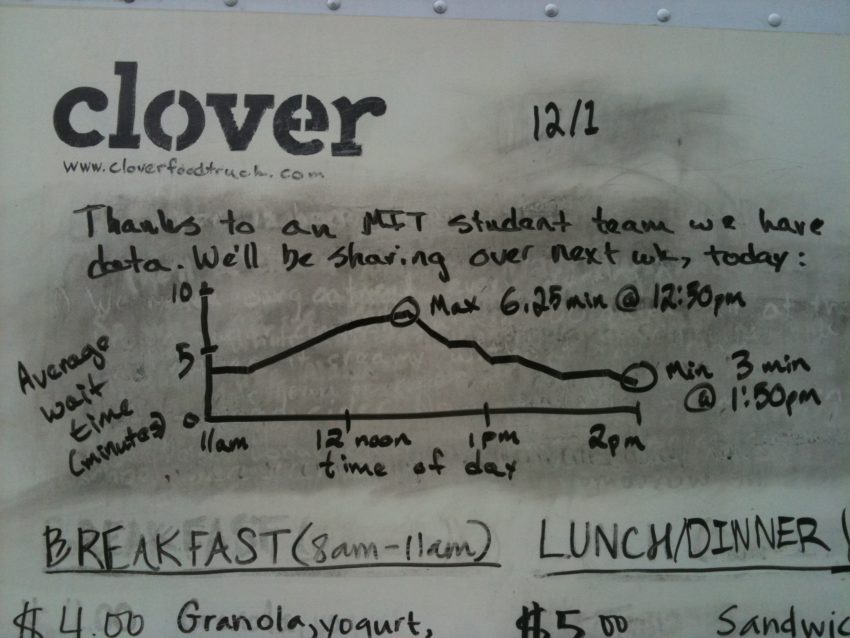 clover
www.cloverfoodtruck.com
12/1
Thanks to an MIT student team we have
data. We'll be sharing over next wk, today:
10
5
0
Average
wait
time
(minutes)
Max 6.25min @ 12:30pm
Min 3 min
@ 1:50pm
11am 12 noon 1pm 2pm
time of day
BREAKFAST (8am-11am)
LUNCH/DINNER
$4.00 Granola, yogurt,
$5.00 Sandwic